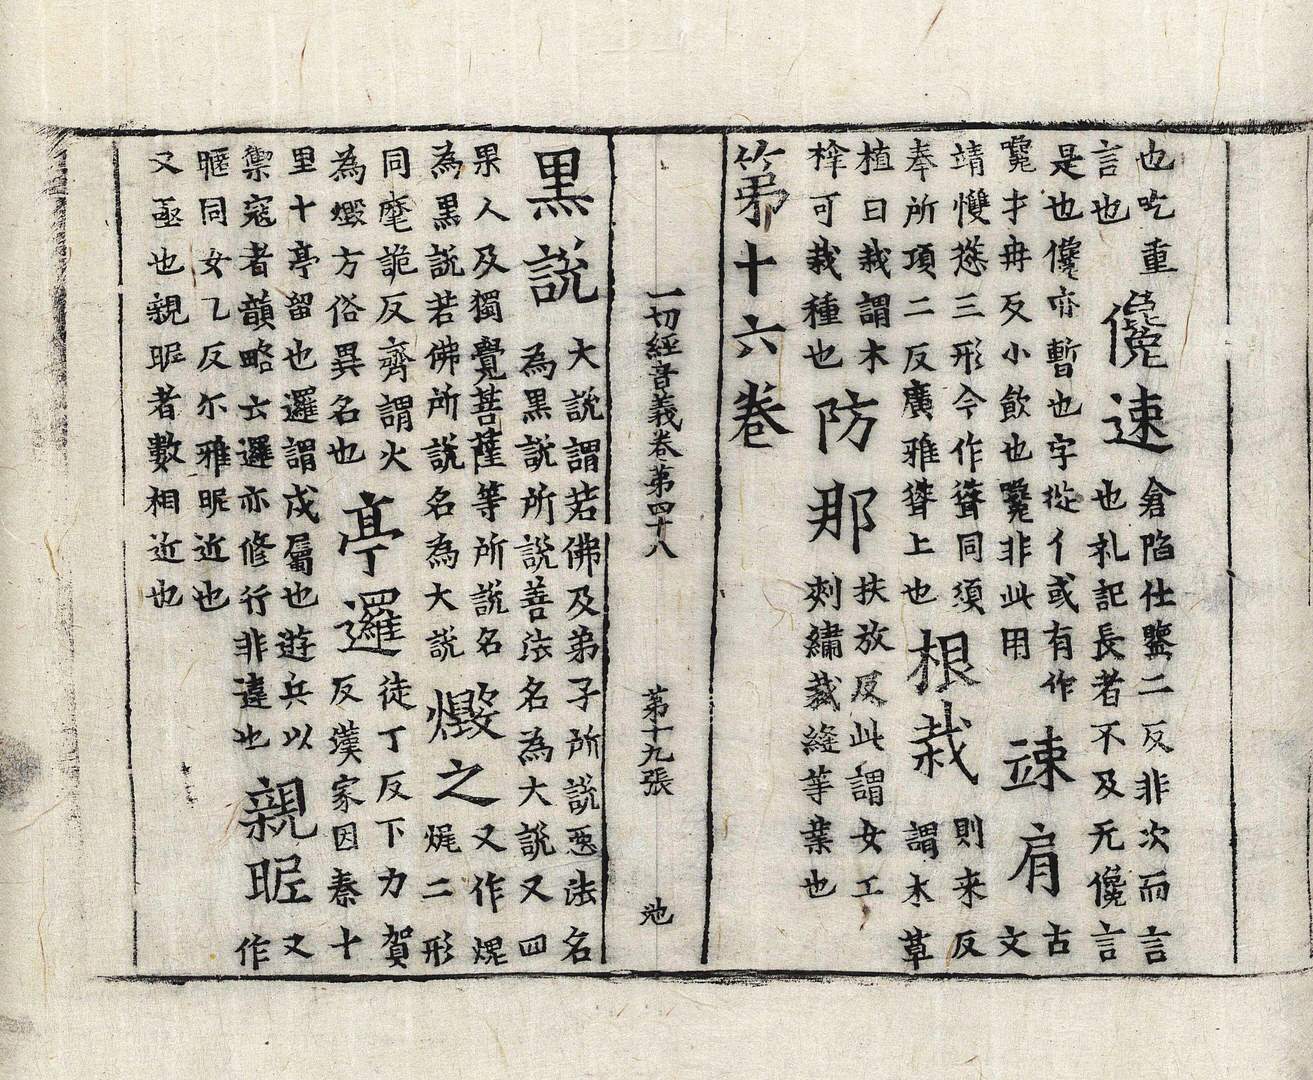 也吃重
言也
儳速
倉陷仕鑒二反非次而言
也礼記長者不及无儳言
是也儳亦暫也字從亻或有作
毚才冉反小飲也毚非此用
竦肩
古
文
靖㩳愯三形今作聳同須
奉所項二反廣雅聳上也
根栽
則来反
謂木草
植曰栽謂木
榟可栽種也
防那
扶放反此謂女工
刺繡裁縫等業也
第十六卷
一切經音義卷第四十八 第十九張
黒說
大說謂若佛及弟子所說惡法名
為黒說所說善法名為大說又四
果人及獨覺菩薩等所說名
為黒說若佛所說名為大說
燬之
又作焜
二形
同麾詭反齊謂火
為燬方俗異名也
亭邏
徒丁反下力賀
反漢家因秦十
里十亭留也邏謂戍屬也遊兵以
禦寇者韻略云邏亦修行非違也
親昵
又
作
暱同女乙反尓雅昵近也
又亟也親昵者數相近也